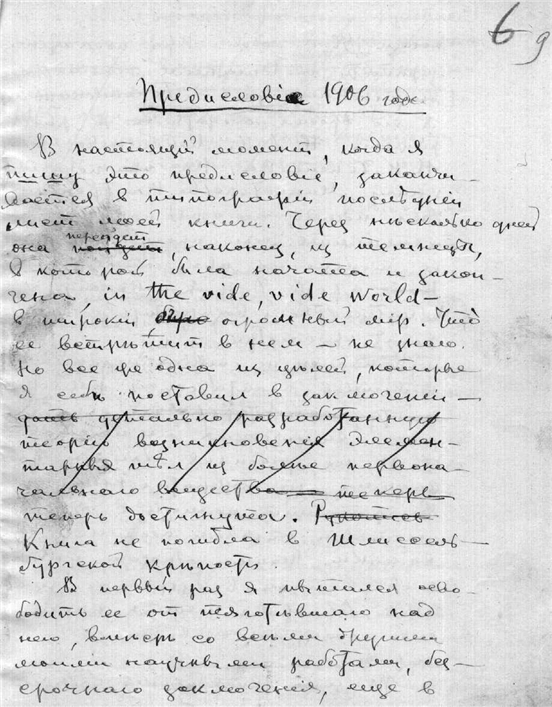 6 9
Предисловіе 1906 года.
В настоящій моментъ, когда я
пишу это предисловіе, заканчи-
вается в типографіи послѣдній
листъ моей книги. Через нѣсколько дней
она перейдетъ, наконец, из темницы,
в которой была начата и закон-
чена, in the vide, vide world—
в широкій огромный мір. Что
ее встрѣтит в нем — не знаю.
Но все же одна из цѣлей, которые
я себѣ поставил в заключеніи —
дать детально разработанную
теорію возникновенія элемен-
тарных тѣл из болѣе первона-
чальнаго вещества — теперь
теперь достигнута. Рукопись
Книга не погибла в Шлиссель-
бургской крѣпости.
В первый раз я пытался осво-
бодить ее от тяготѣвшаго над
нею, вмѣстѣ со всѣми другими
моими научными работами, без-
срочнаго заключенія, еще в